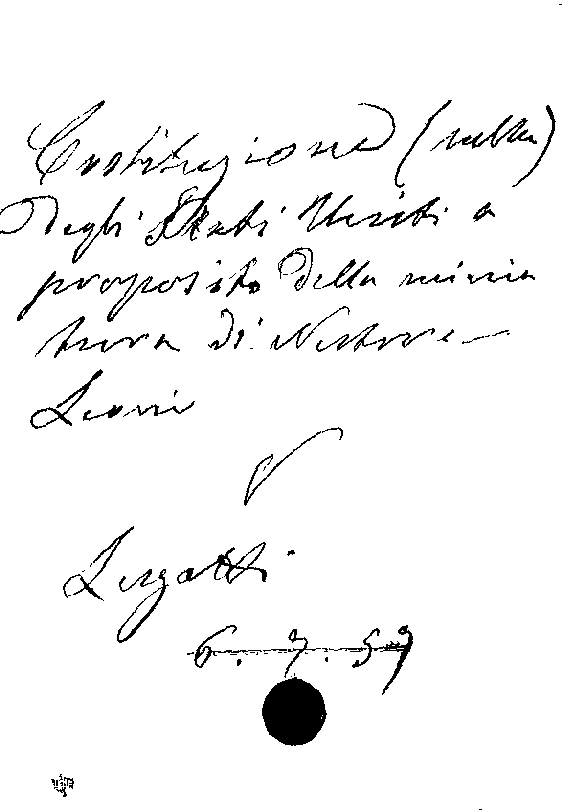 Costituzione (sulla)
degli Stati Uniti a
proposito della minia
tura di Nestore
Leoni
Lugatti
6.7.59